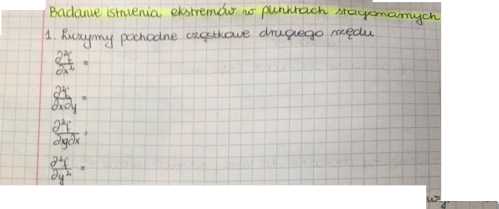 Badanie istnienia ekstremów w punktach stacjonarnych
1. Liczymy pochodne cząstkowe drugiego rzędu
∂²f/∂x² =
∂²f/∂x∂y =
∂²f/∂y∂x =
∂²f/∂y² =